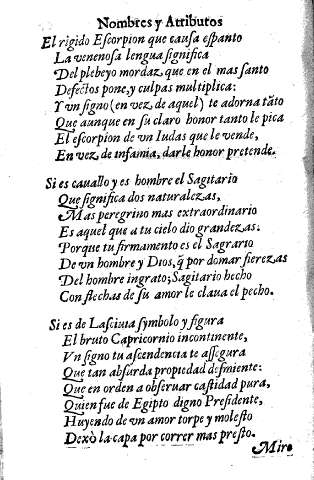 Nombres y Atributos
El rigido Escorpion que causa espanto
La venenosa lengua significa
Del plebeyo mordaz, que en el mas santo
Defectos pone, y culpas multiplica:
Y vn signo (en vez de aquel) te adorna tãto
Que aunque en su claro honor tanto le pica
El escorpion de vn Iudas que le vende,
En vez de infamia, darle honor pretende.
Si es cauallo y es hombre el Sagitario
Que significa dos naturalezas,
Mas peregrino mas extraordinario
Es aquel que a tu cielo dio grandezas:
Porque tu firmamento es el Sagrario
De vn hombre y Dios, q̃ por domar fierezas
Del hombre ingrato, Sagitario hecho
Con flechas de su amor le claua el pecho.
Si es de Lasciuia symbolo y figura
El bruto Capricornio incontinente,
Vn signo tu ascendencia te assegura
Que tan absurda propiedad desmiente:
Que en orden a obseruar castidad pura,
Quien fue de Egipto digno Presidente,
Huyendo de vn amor torpe y molesto
Dexò la capa por correr mas presto.
Miro